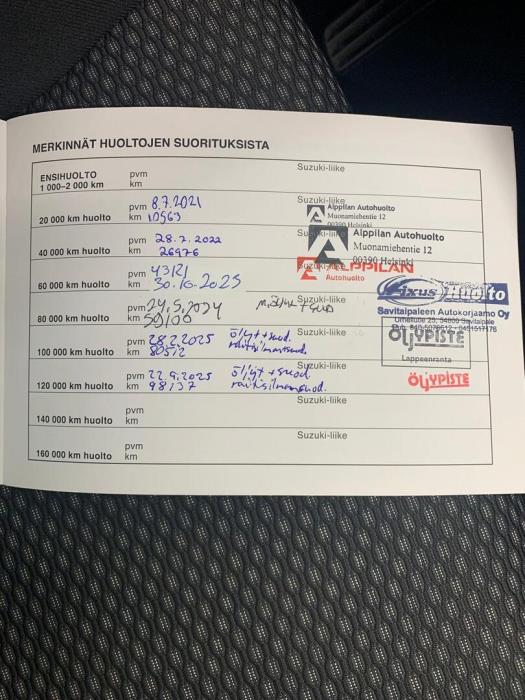 MERKINNÄT HUOLTOJEN SUORITUKSISTA
ENSIHUOLTO
1 000–2 000 km
pvm
km
Suzuki-liike
20 000 km huolto
pvm 8.7.2021
km 10563
Suzuki-liike
Alppilan Autohuolto
Muonamiehentie 12
00390 Helsinki
40 000 km huolto
pvm 28.7.2022
km 26976
Alppilan Autohuolto
Muonamiehentie 12
00390 Helsinki
60 000 km huolto
pvm 43121
km 30.10.2023
Suzuki-liike
ALPPILAN
Autohuolto
Fixus Huolto
Savitaipaleen Autokorjaamo Oy
80 000 km huolto
pvm 24.5.2024
km 50100
Suzuki-liike
100 000 km huolto
pvm 28.2.2025
km 80512
öljyt + suod.
raitisilmansuod.
Suzuki-liike
ÖLJYPISTE
Lappeenranta
120 000 km huolto
pvm 22.9.2025
km 98137
öljyt + suod.
raitisilmansuod.
Suzuki-liike
ÖLJYPISTE
140 000 km huolto
pvm
km
Suzuki-liike
160 000 km huolto
pvm
km
Suzuki-liike